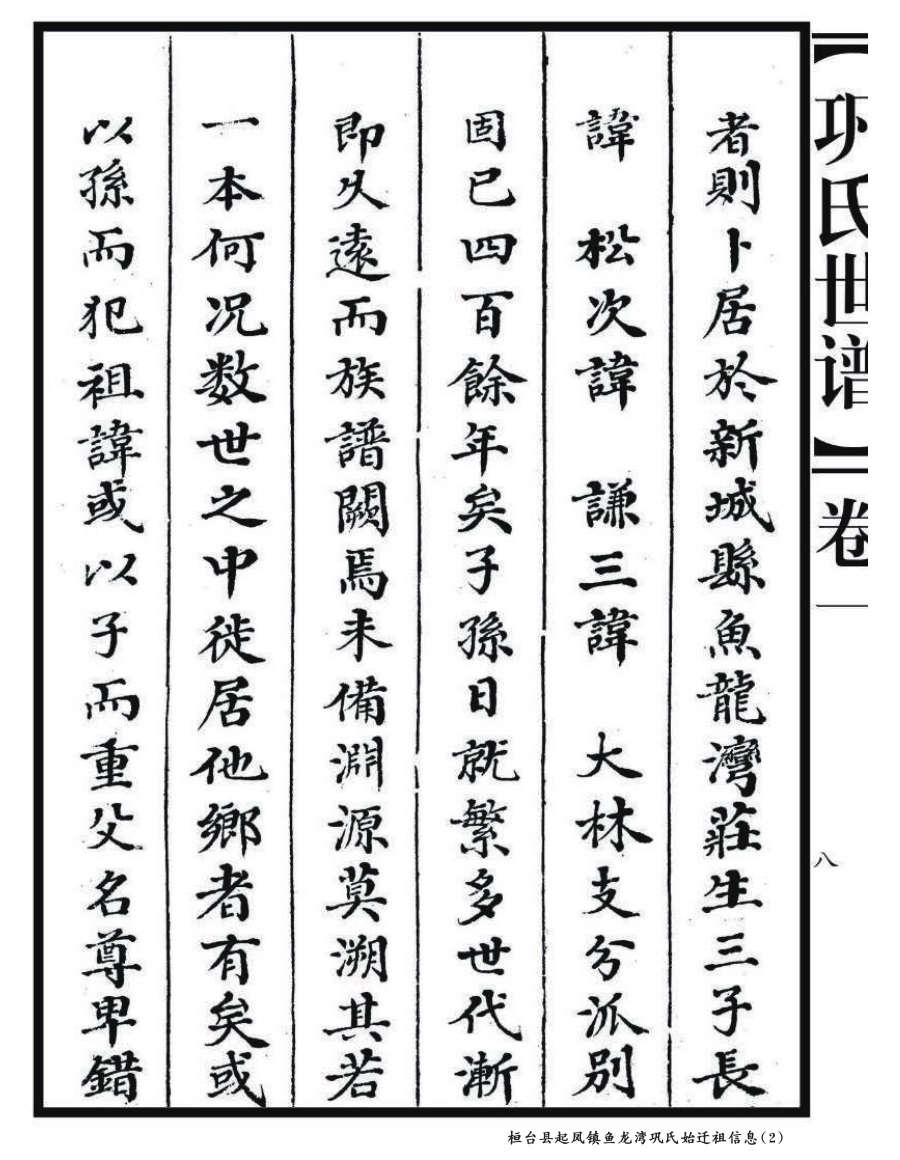 【巩氏世谱】卷一
八
者則卜居於新城縣魚龍灣莊生三子長
諱　松次諱　謙三諱　大林支分派別
固已四百餘年矣子孫日就繁多世代漸
即久遠而族譜闕焉未備淵源莫溯其若
一本何况数世之中徙居他鄉者有矣或
以孫而犯祖諱或以子而重父名尊卑錯
桓台县起凤镇鱼龙湾巩氏始迁祖信息(2)